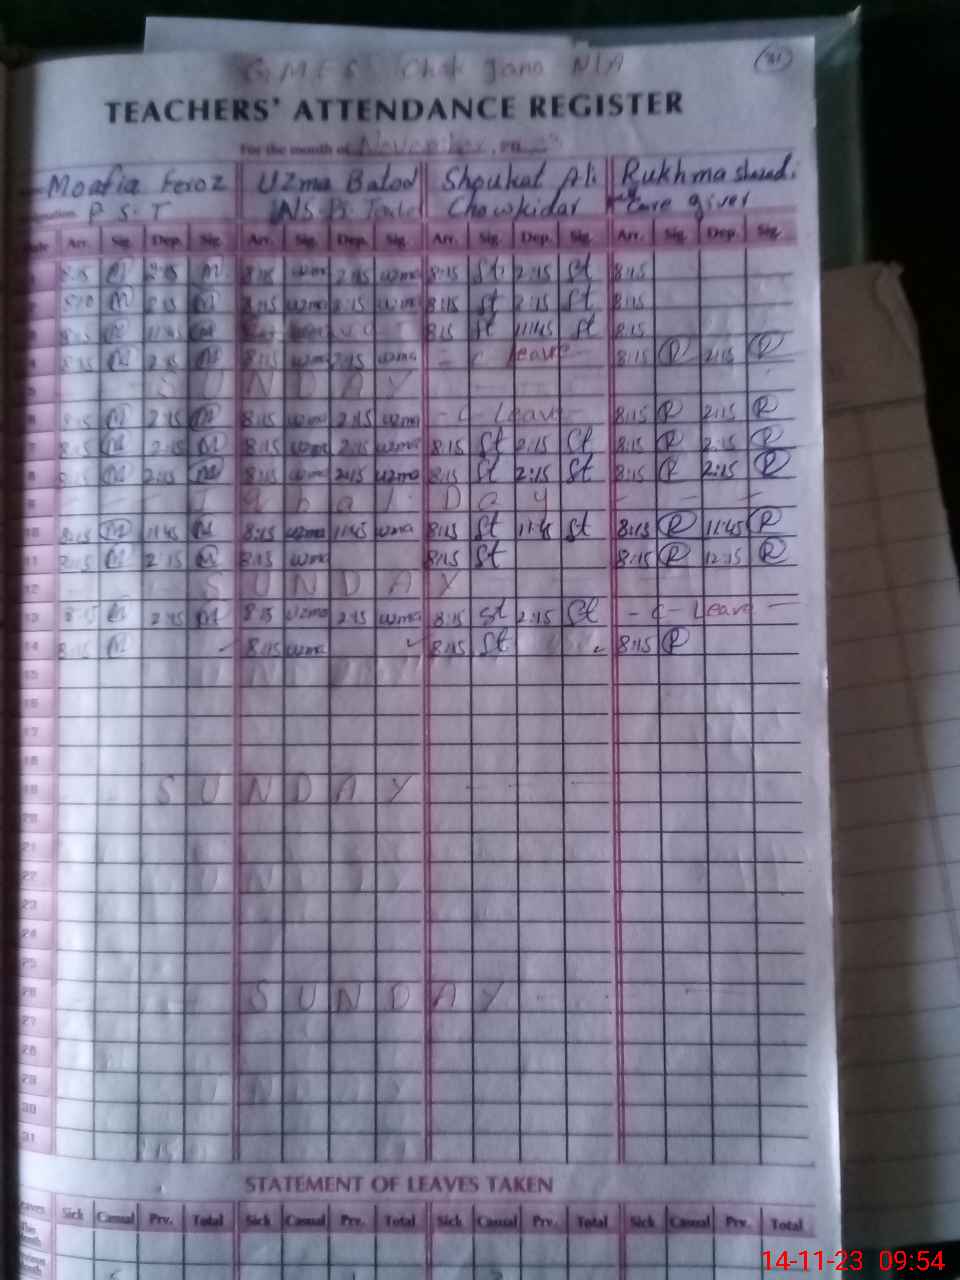 G.M.E.S Chak Jano N/A
31
TEACHERS' ATTENDANCE REGISTER
For the month of November,
Moafia Feroz Uzma Batool Shoukat Ali Rukhma
P.S.T Chowkidar Care giver
Arr. Sig. Dep. Sig. Arr. Sig. Dep. Sig. Arr. Sig. Dep. Sig. Arr. Sig. Dep. Sig.
8:15 M 2:15 M 8:15 uzma 2:15 uzma 8:15 St 2:15 St 8:15
M M 8:15 uzma uzma 8:15 St 2:15 St 8:15
M 11:45 M 8:15 St 11:45 St 8:15
8:15 M 2:15 M 8:15 uzma 2:15 uzma - C Leave - 8:15 R 2:15 R
SUNDAY
6 8:15 M 2:15 M 8:15 uzma 2:15 uzma - C - Leave - 8:15 R 2:15 R
7 8:15 M 2:15 M 8:15 uzma 2:15 uzma 8:15 St 2:15 St 8:15 R 2:15 R
8 8:15 M 2:15 M 8:15 uzma 2:15 uzma 8:15 St 2:15 St 8:15 R 2:15 R
9 Iqbal Day
10 8:15 M 11:45 M 8:15 uzma 11:45 uzma 8:15 St 11:45 St 8:15 R 11:45 R
11 8:15 M 2:15 M 8:15 uzma 8:15 St 8:15 R 12:15 R
12 SUNDAY
13 8:15 M 2:15 M 8:15 uzma 2:15 uzma 8:15 St 2:15 St - C - Leave -
14 8:15 M 8:15 uzma 8:15 St 8:15 R
15
16
17
18
19 SUNDAY
20
21
22
23
24
25
26 SUNDAY
27
28
29
30
31
STATEMENT OF LEAVES TAKEN
Sick Casual Prv. Total Sick Casual Prv. Total Sick Casual Prv. Total Sick Casual Prv. Total
14-11-23 09:54